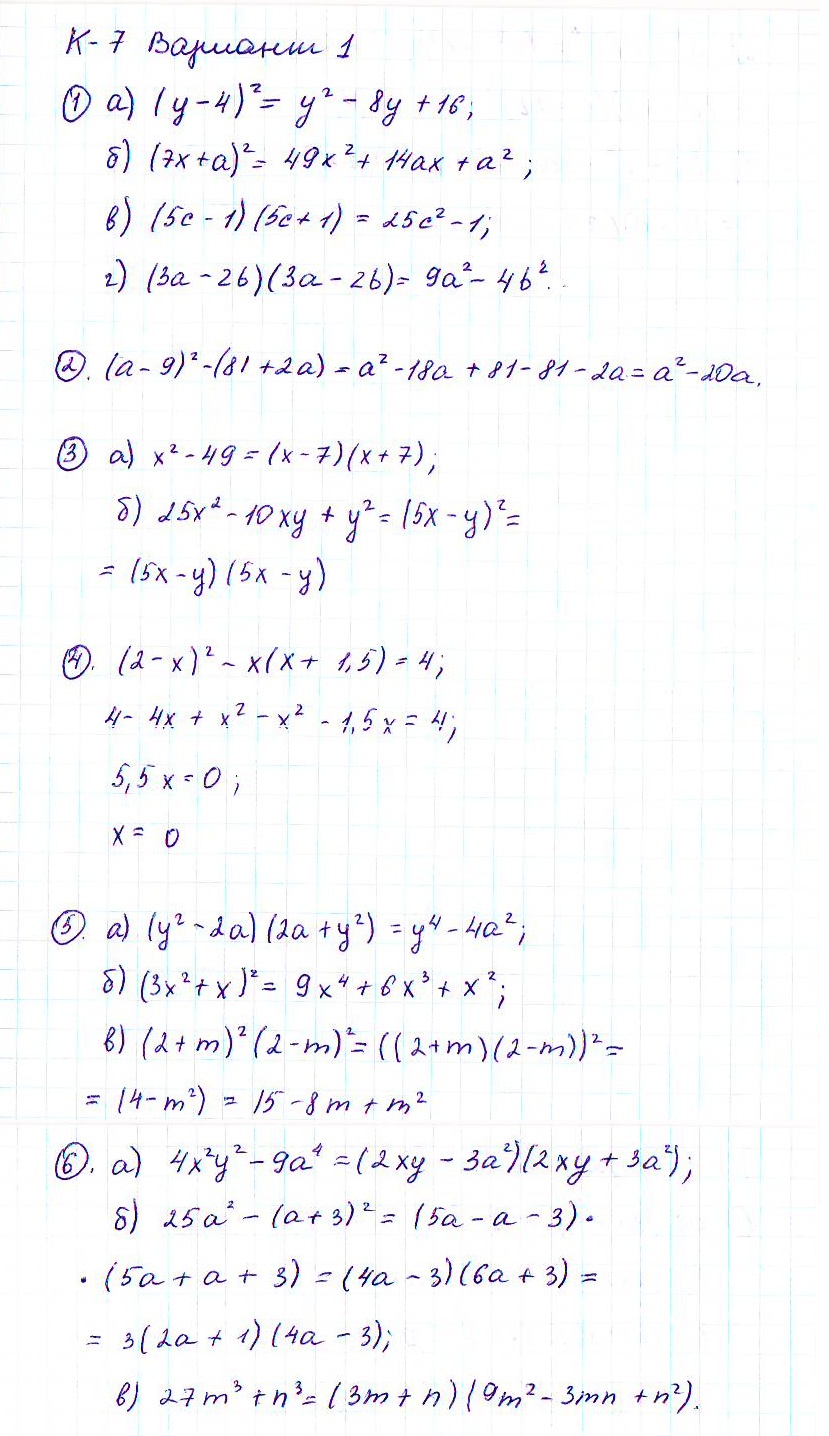 К-7 Вариант 1
① а) (y-4)² = y² - 8y + 16;
б) (7x+a)² = 49x² + 14ax + a²;
в) (5c-1)(5c+1) = 25c² - 1;
г) (3a-2b)(3a-2b) = 9a² - 4b².
②. (a-9)² - (81+2a) = a² - 18a + 81 - 81 - 2a = a² - 20a.
③ а) x² - 49 = (x-7)(x+7);
б) 25x² - 10xy + y² = (5x-y)² =
= (5x-y)(5x-y)
④. (2-x)² - x(x+1,5) = 4;
4 - 4x + x² - x² - 1,5x = 4;
5,5x = 0;
x = 0
⑤. а) (y²-2a)(2a+y²) = y⁴ - 4a²;
б) (3x²+x)² = 9x⁴ + 6x³ + x²;
в) (2+m)²(2-m)² = ((2+m)(2-m))² =
= (4-m²) = 15 - 8m + m²
⑥. а) 4x²y² - 9a⁴ = (2xy - 3a²)(2xy + 3a²);
б) 25a² - (a+3)² = (5a - a - 3) ·
· (5a + a + 3) = (4a - 3)(6a + 3) =
= 3(2a + 1)(4a - 3);
в) 27m³ + n³ = (3m + n)(9m² - 3mn + n²).